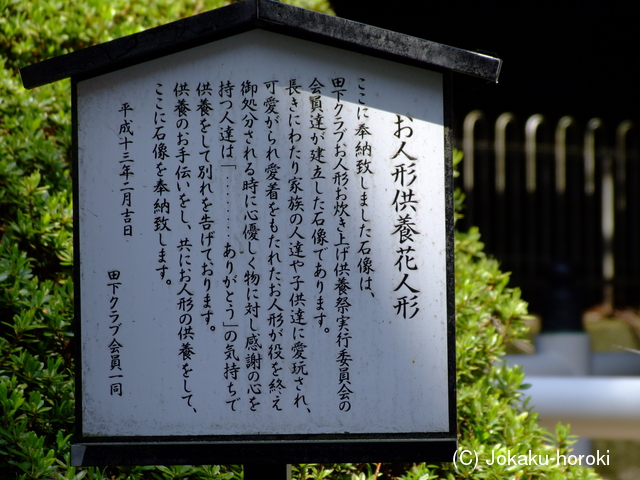 お人形供養花人形
ここに奉納致しました石像は、
田下クラブお人形お炊き上げ供養祭実行委員会の
会員達が建立した石像であります。
長きにわたり家族の人達や子供達に愛玩され、
可愛がられ愛着をもたれたお人形が役を終え
御処分される時に心優しく物に対し感謝の心を
持つ人達は「‥‥‥‥ありがとう」の気持ちで
供養をして別れを告げております。
供養のお手伝いをし、共にお人形の供養をして、
ここに石像を奉納致します。
平成十三年二月吉日
田下クラブ会員一同
(C)Jokaku-horoki